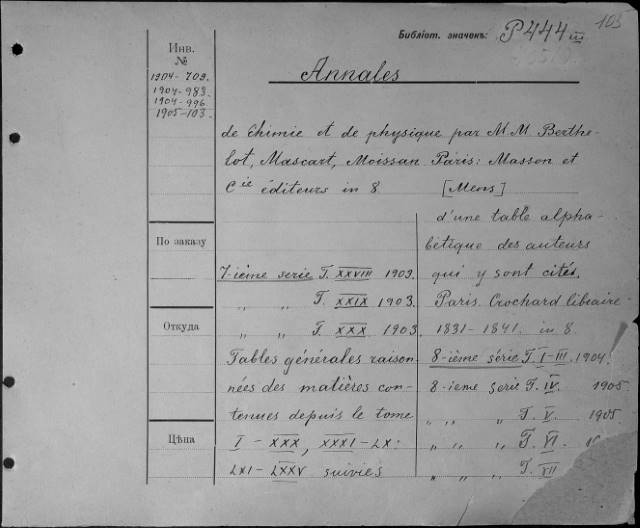 Библіот. значекъ: P 444 III
103
Инв.
№
1904-709.
1904-983.
1904-996
1905-103.
Annales
de Chimie et de physique par M.M Berthe-
lot, Mascart, Moissan Paris: Masson et
Cie éditeurs in 8 [Mens]
По заказу
7-ième serie T. XXVIII 1903.
„ „ T. XXIX 1903.
Откуда
„ „ T. XXX 1903.
Tables générales raison-
nées des matières con-
tenues depuis le tome
Цѣна
I-XXX, XXXI-LX:
LXI-LXXV suivies
d'une table alpha-
bétique des auteurs
qui y sont cités.
Paris. Crochard libraire
1831-1841. in 8.
8-ième série T. I-III. 1904.
8-ieme serie T. IV. 1905
„ „ „ T. V. 1905
„ „ „ T. VI.
„ „ „ T. VII